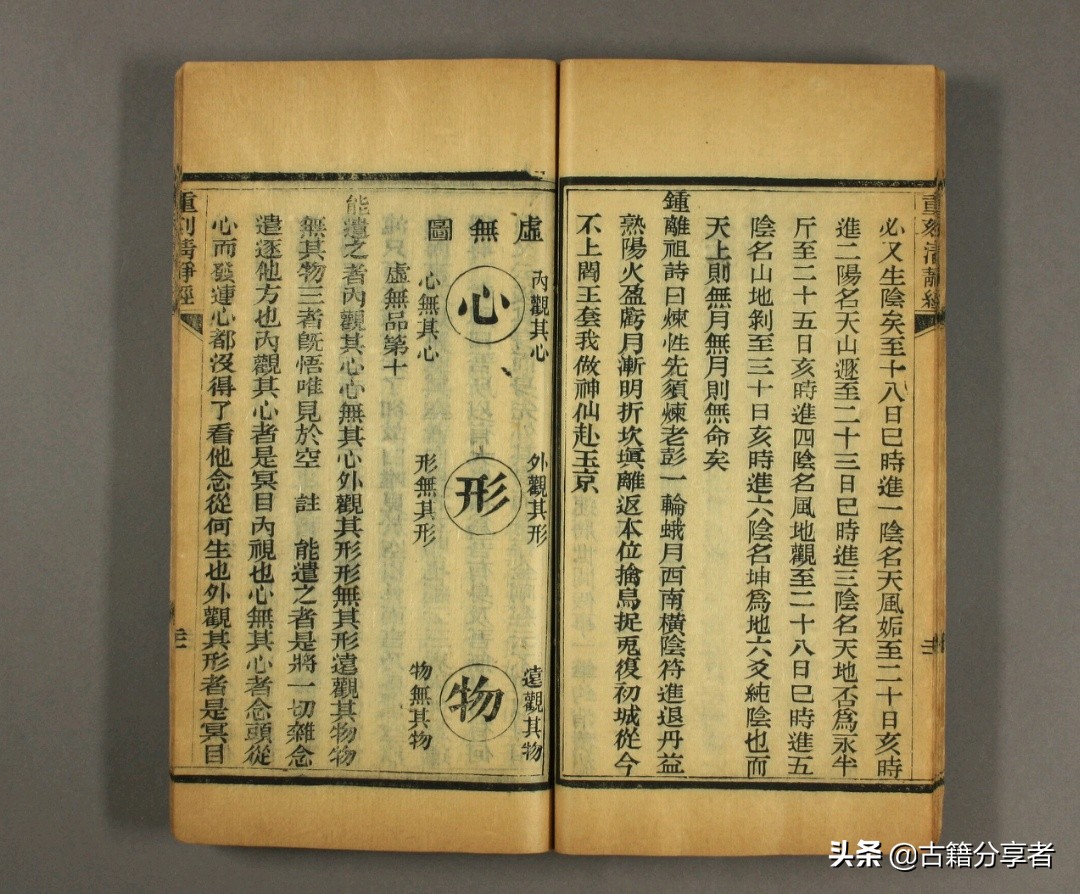 重刻清靜經
必又生陰矣至十八日巳時進一陰名天風姤至二十日亥時
進二陽名天山遯至二十三日巳時進三陰名天地否為永半
斤至二十五日亥時進四陰名風地觀至二十八日巳時進五
陰名山地剝至三十日亥時進六陰名坤為地六爻純陰也而
天上則無月無月則無命矣
鍾離祖詩曰煉性先須煉老彭一輪蛾月西南橫陰符進退丹益
熟陽火盈虧月漸明折坎塡離返本位擒烏捉兎復初城從今
不上閻王套我做神仙赴玉京
虛無圖
內觀其心
心
心無其心
外觀其形
形
形無其形
遠觀其物
物
物無其物
虛無品第十
能遣之者內觀其心心無其心外觀其形形無其形遠觀其物物
無其物三者旣悟唯見於空 註 能遣之者是將一切雜念
遣逐他方也內觀其心者是冥目內視也心無其心者念頭從
心而發連心都沒得了看他念從何生也外觀其形者是冥目
重刻清靜經
頭条 @古籍分享者